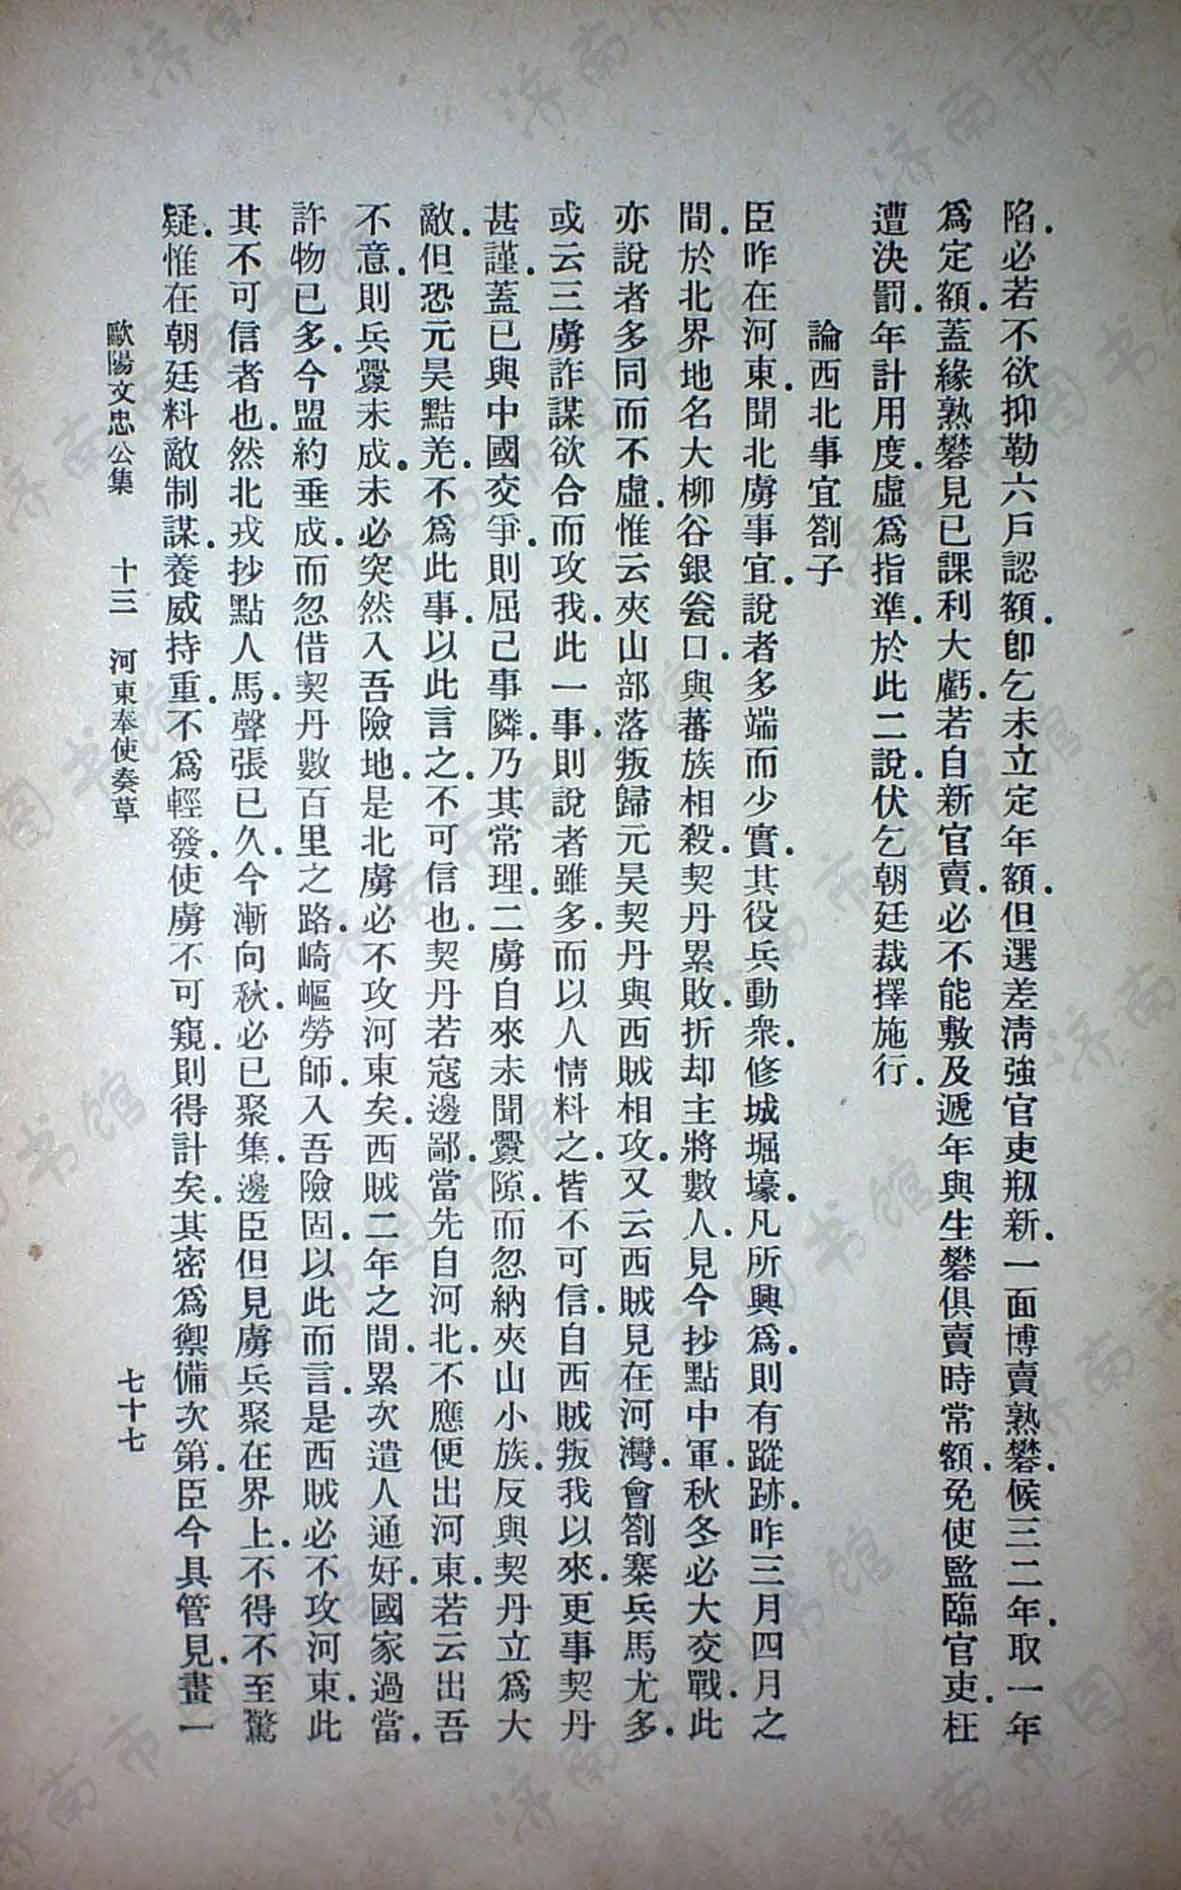 陷必若不欲抑勒六戶認額卽乞未立定年額但選差淸強官吏剏新一面博賣熟礬候三二年取一年
爲定額蓋緣熟礬見已課利大虧若自新官賣必不能敷及遞年與生礬俱賣時常額免使監臨官吏枉
遭決罰年計用度虛爲指準於此二說伏乞朝廷裁擇施行
論西北事宜劄子
臣昨在河東聞北虜事宜說者多端而少實其役兵動衆修城堀壕凡所興爲則有蹤跡昨三月四月之
間於北界地名大柳谷銀瓮口與蕃族相殺契丹累敗折却主將數人見今抄點中軍秋冬必大交戰此
亦說者多同而不虛惟云夾山部落叛歸元昊契丹與西賊相攻又云西賊見在河灣會劄寨兵馬尤多
或云三虜詐謀欲合而攻我此一事則說者雖多而以人情料之皆不可信自西賊叛我以來更事契丹
甚謹蓋已與中國交爭則屈己事隣乃其常理二虜自來未聞釁隙而忽納夾山小族反與契丹立爲大
敵但恐元昊黠羌不爲此事以此言之不可信也契丹若寇邊鄙當先自河北不應便出河東若云出吾
不意則兵釁未成未必突然入吾險地是北虜必不攻河東矣西賊二年之間累次遣人通好國家過當
許物已多今盟約垂成而忽借契丹數百里之路崎嶇勞師入吾險固以此而言是西賊必不攻河東此
其不可信者也然北戎抄點人馬聲張已久今漸向秋必已聚集邊臣但見虜兵聚在界上不得不至驚
疑惟在朝廷料敵制謀養威持重不爲輕發使虜不可窺則得計矣其密爲禦備次第臣今具管見畫一
歐陽文忠公集 十三 河東奉使奏草 七十七
济南市图书馆